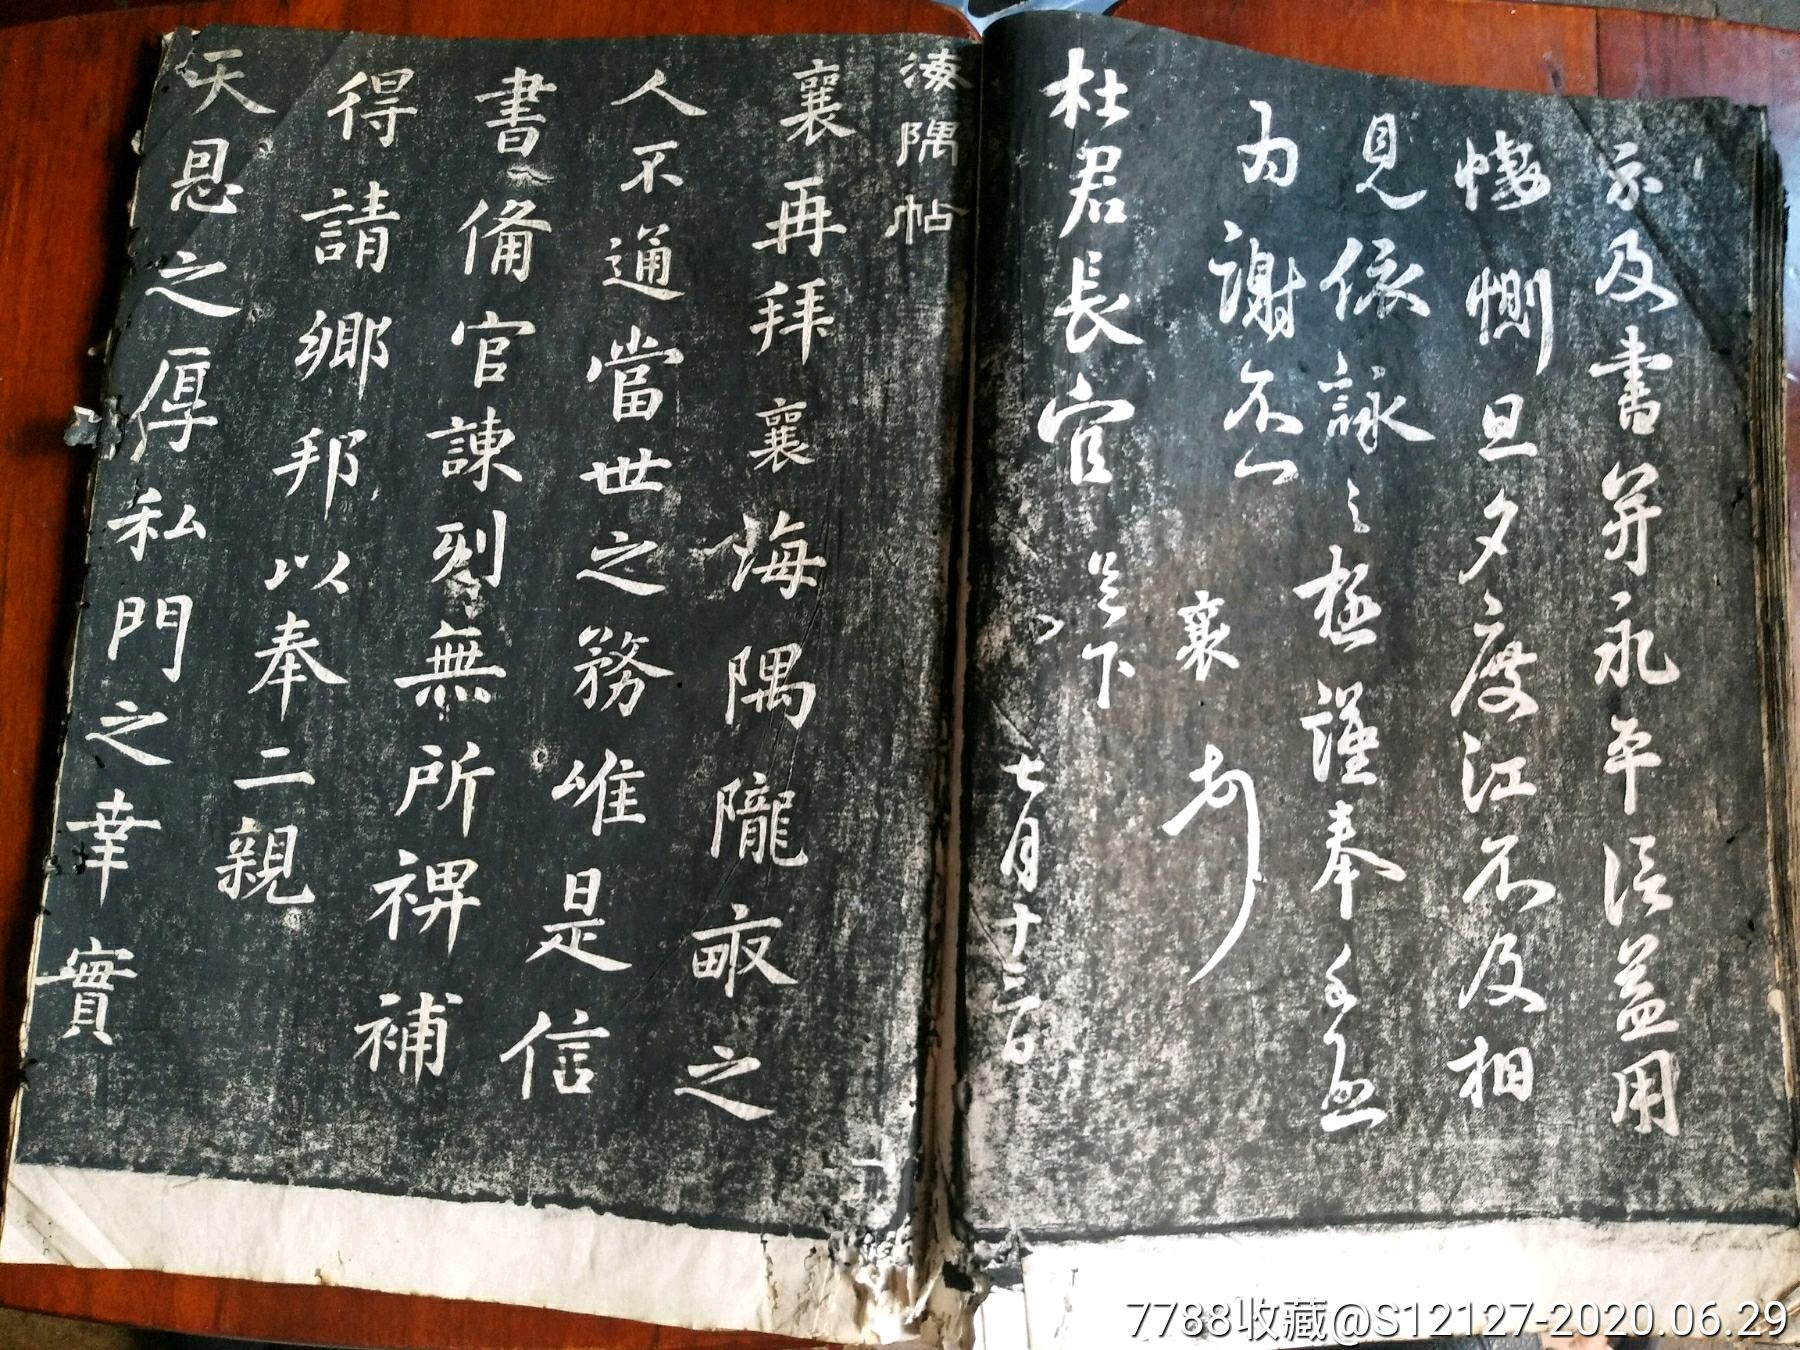 示及書并永平信益用
悽惻旦夕度江不及相
見依詠之極謹奉手啟
為謝不一
襄頓首
杜君長官足下
七月十三日
海隅帖
襄再拜襄海隅隴畝之
人不通當世之務唯是信
書備官諫列無所裨補
得請鄉邦以奉二親
天恩之厚私門之幸實
7788收藏@S12127-2020.06.29